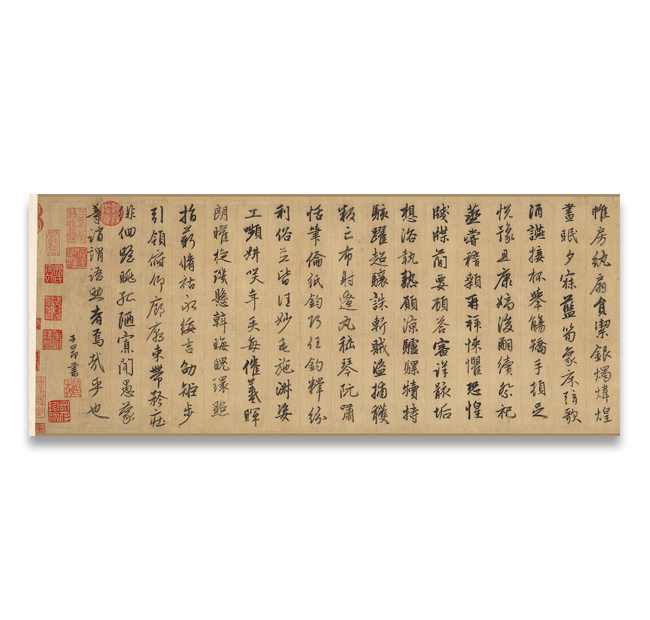 帷房紈扇員潔銀燭煒煌
晝眠夕寐藍筍象床弦歌
酒讌接杯舉觴矯手頓足
悅豫且康嫡後嗣續祭祀
蒸嘗稽顙再拜悚懼恐惶
牋牒簡要顧答審詳骸垢
想浴執熱願涼驢騾犢特
駭躍超驤誅斬賊盜捕獲
叛亡布射遼丸嵇琴阮嘯
恬筆倫紙鈞巧任釣釋紛
利俗並皆佳妙毛施淑姿
工嚬妍笑年矢每催羲暉
朗曜旋璣懸斡晦魄環照
指薪脩祜永綏吉劭矩步
引領俯仰廊廟束帶矜莊
徘徊瞻眺孤陋寡聞愚蒙
等誚謂語助者焉哉乎也
子昂書